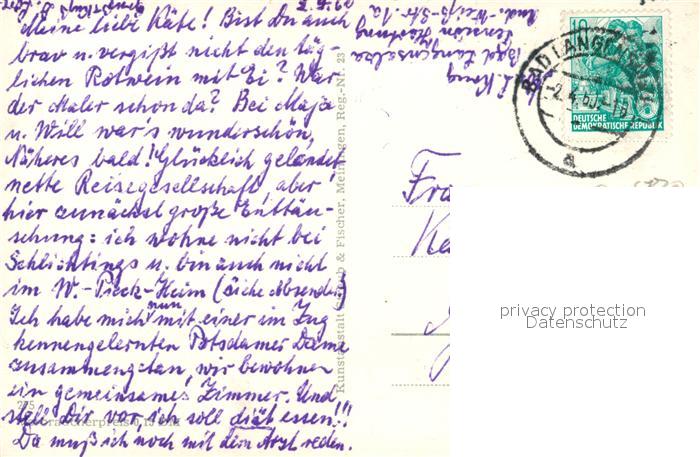 Meine liebe Käte! Bist Du auch
brav u. vergißt nicht den täg-
lichen Rotwein mit Ei? War
der Maler schon da? Bei Maja
u. Will war's wunderschön,
Näheres bald! Glücklich gelandet
nette Reisegesellschaft, aber
hier zunächst große Enttäu-
schung: ich wohne nicht bei
Schlichtings u. bin auch nicht
im W.-Pieck-Heim (siehe Absender)
Ich habe mich nun mit einer im Zug
kennengelernten Potsdamer Dame
zusammengetan, wir bewohnen
ein gemeinsames Zimmer. Und
stell Dir vor, ich soll diät essen!!!
Da muß ich noch mit dem Arzt reden.
Bad Langensalza
Kunstanstalt & Fischer, Meiningen, Reg.-Nr. 23
BAD LANGENSALZA
-2.4.60
a
10
DEUTSCHE
DEMOKRATISCHE REPUBLIK
Fra
privacy protection
Datenschutz